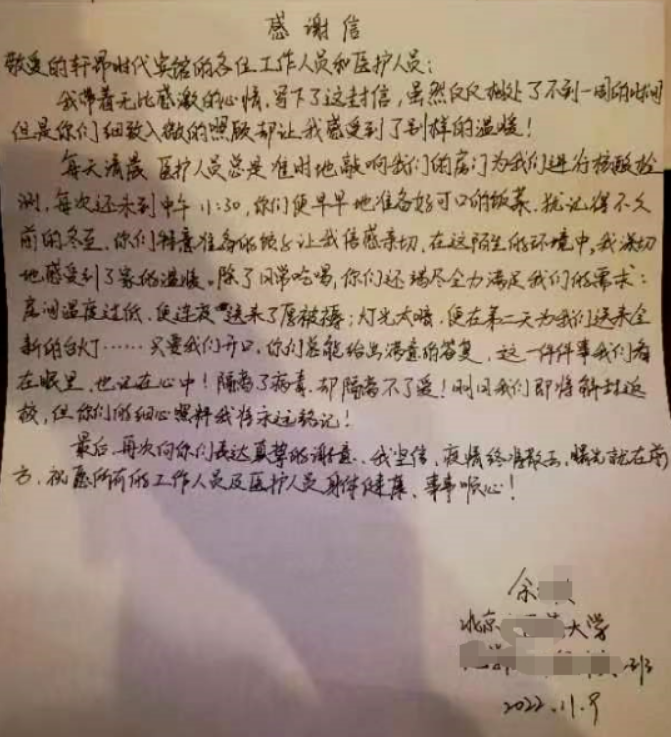 感谢信
敬爱的轩昂时代宾馆的各位工作人员和医护人员:
我带着无比感激的心情,写下了这封信,虽然仅仅相处了不到一周的时间
但是你们细致入微的照顾却让我感受到了别样的温暖!
每天清晨 医护人员总是准时地敲响我们的房门为我们进行核酸检
测,每次还未到中午11:30,你们便早早地准备好可口的饭菜.犹记得不久
前的冬至,你们特意准备的饺子让我倍感亲切,在这陌生的环境中,我深切
地感受到了家的温暖。除了日常吃喝,你们还竭尽全力满足我们的需求:
房间温度过低,便连夜送来了厚被褥;灯光太暗,便在第二天为我们送来全
新的台灯……只要我们开口,你们总能给出满意的答复,这一件件事我们看
在眼里,也记在心中!隔离了病毒,却隔离不了爱!明日我们即将解封返
校,但你们的细心照料我将永远铭记!
最后,再次向你们表达真挚的谢意,我坚信,疫情终将散去,曙光就在前
方,祝愿所有的工作人员及医护人员身体健康、事事顺心!
余
北京 大学
班
2022.11.9